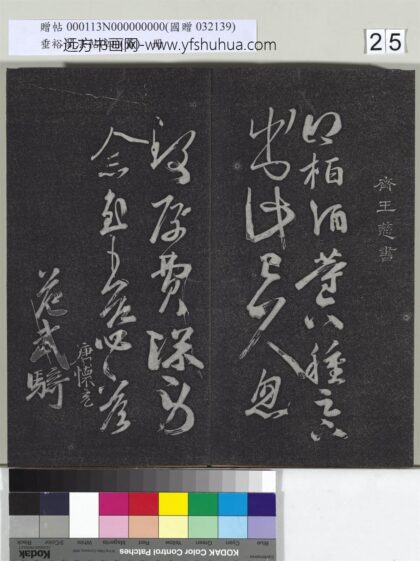 贈帖 000113N000000000(國贈 032139)
垂裕
远方书画网-www.yfshuhua.com
25
齊王慈書
得柏酒等六種足下
出此已久忽
致厚費深勞
念
唐懷充
范武騎
KODAK Color Control Patches
Blue Cyan Green Yellow Red Magenta White 3/Color Black